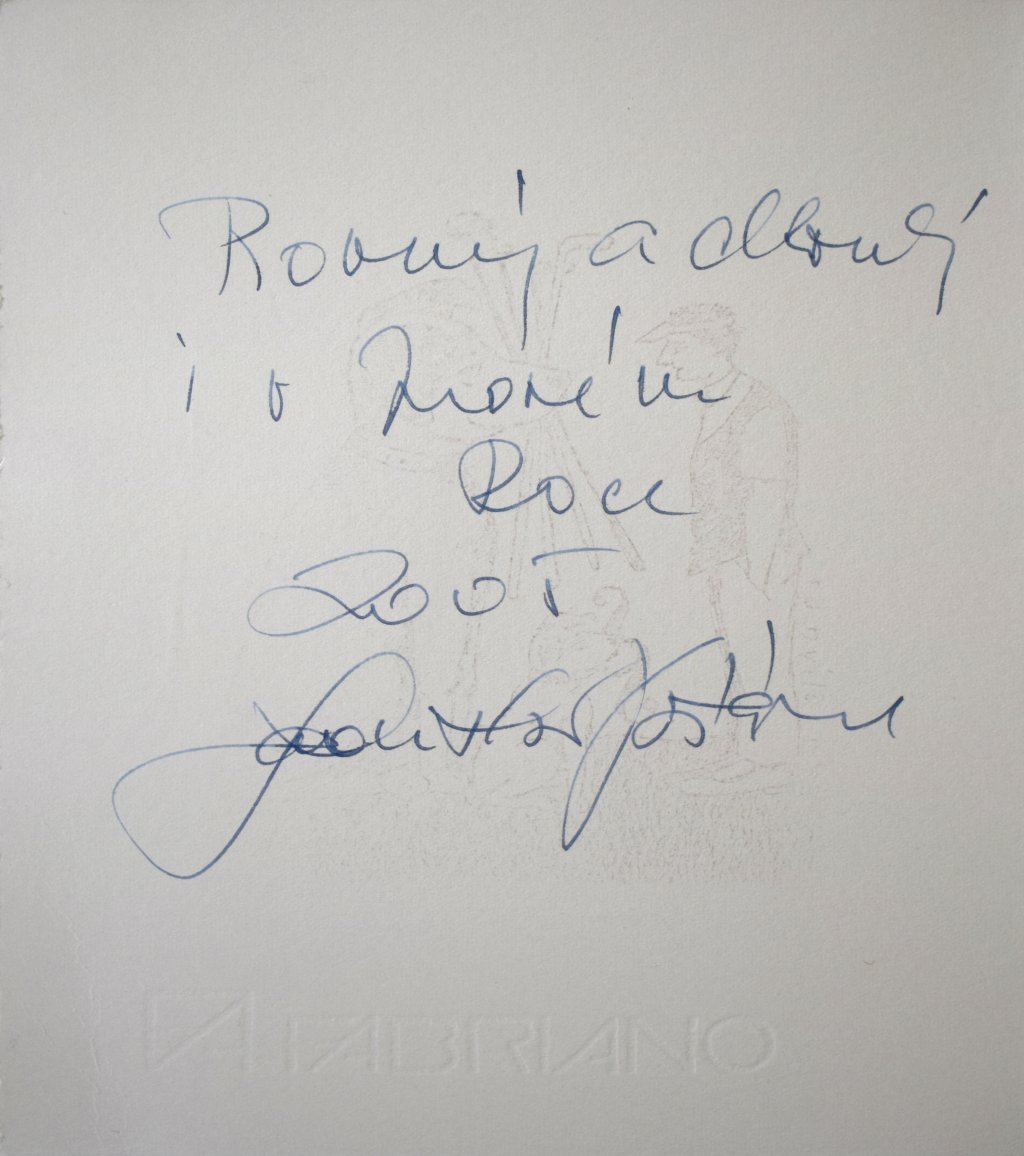 Rovný a dlouhý
i v Novém
Roce
FABRIANO